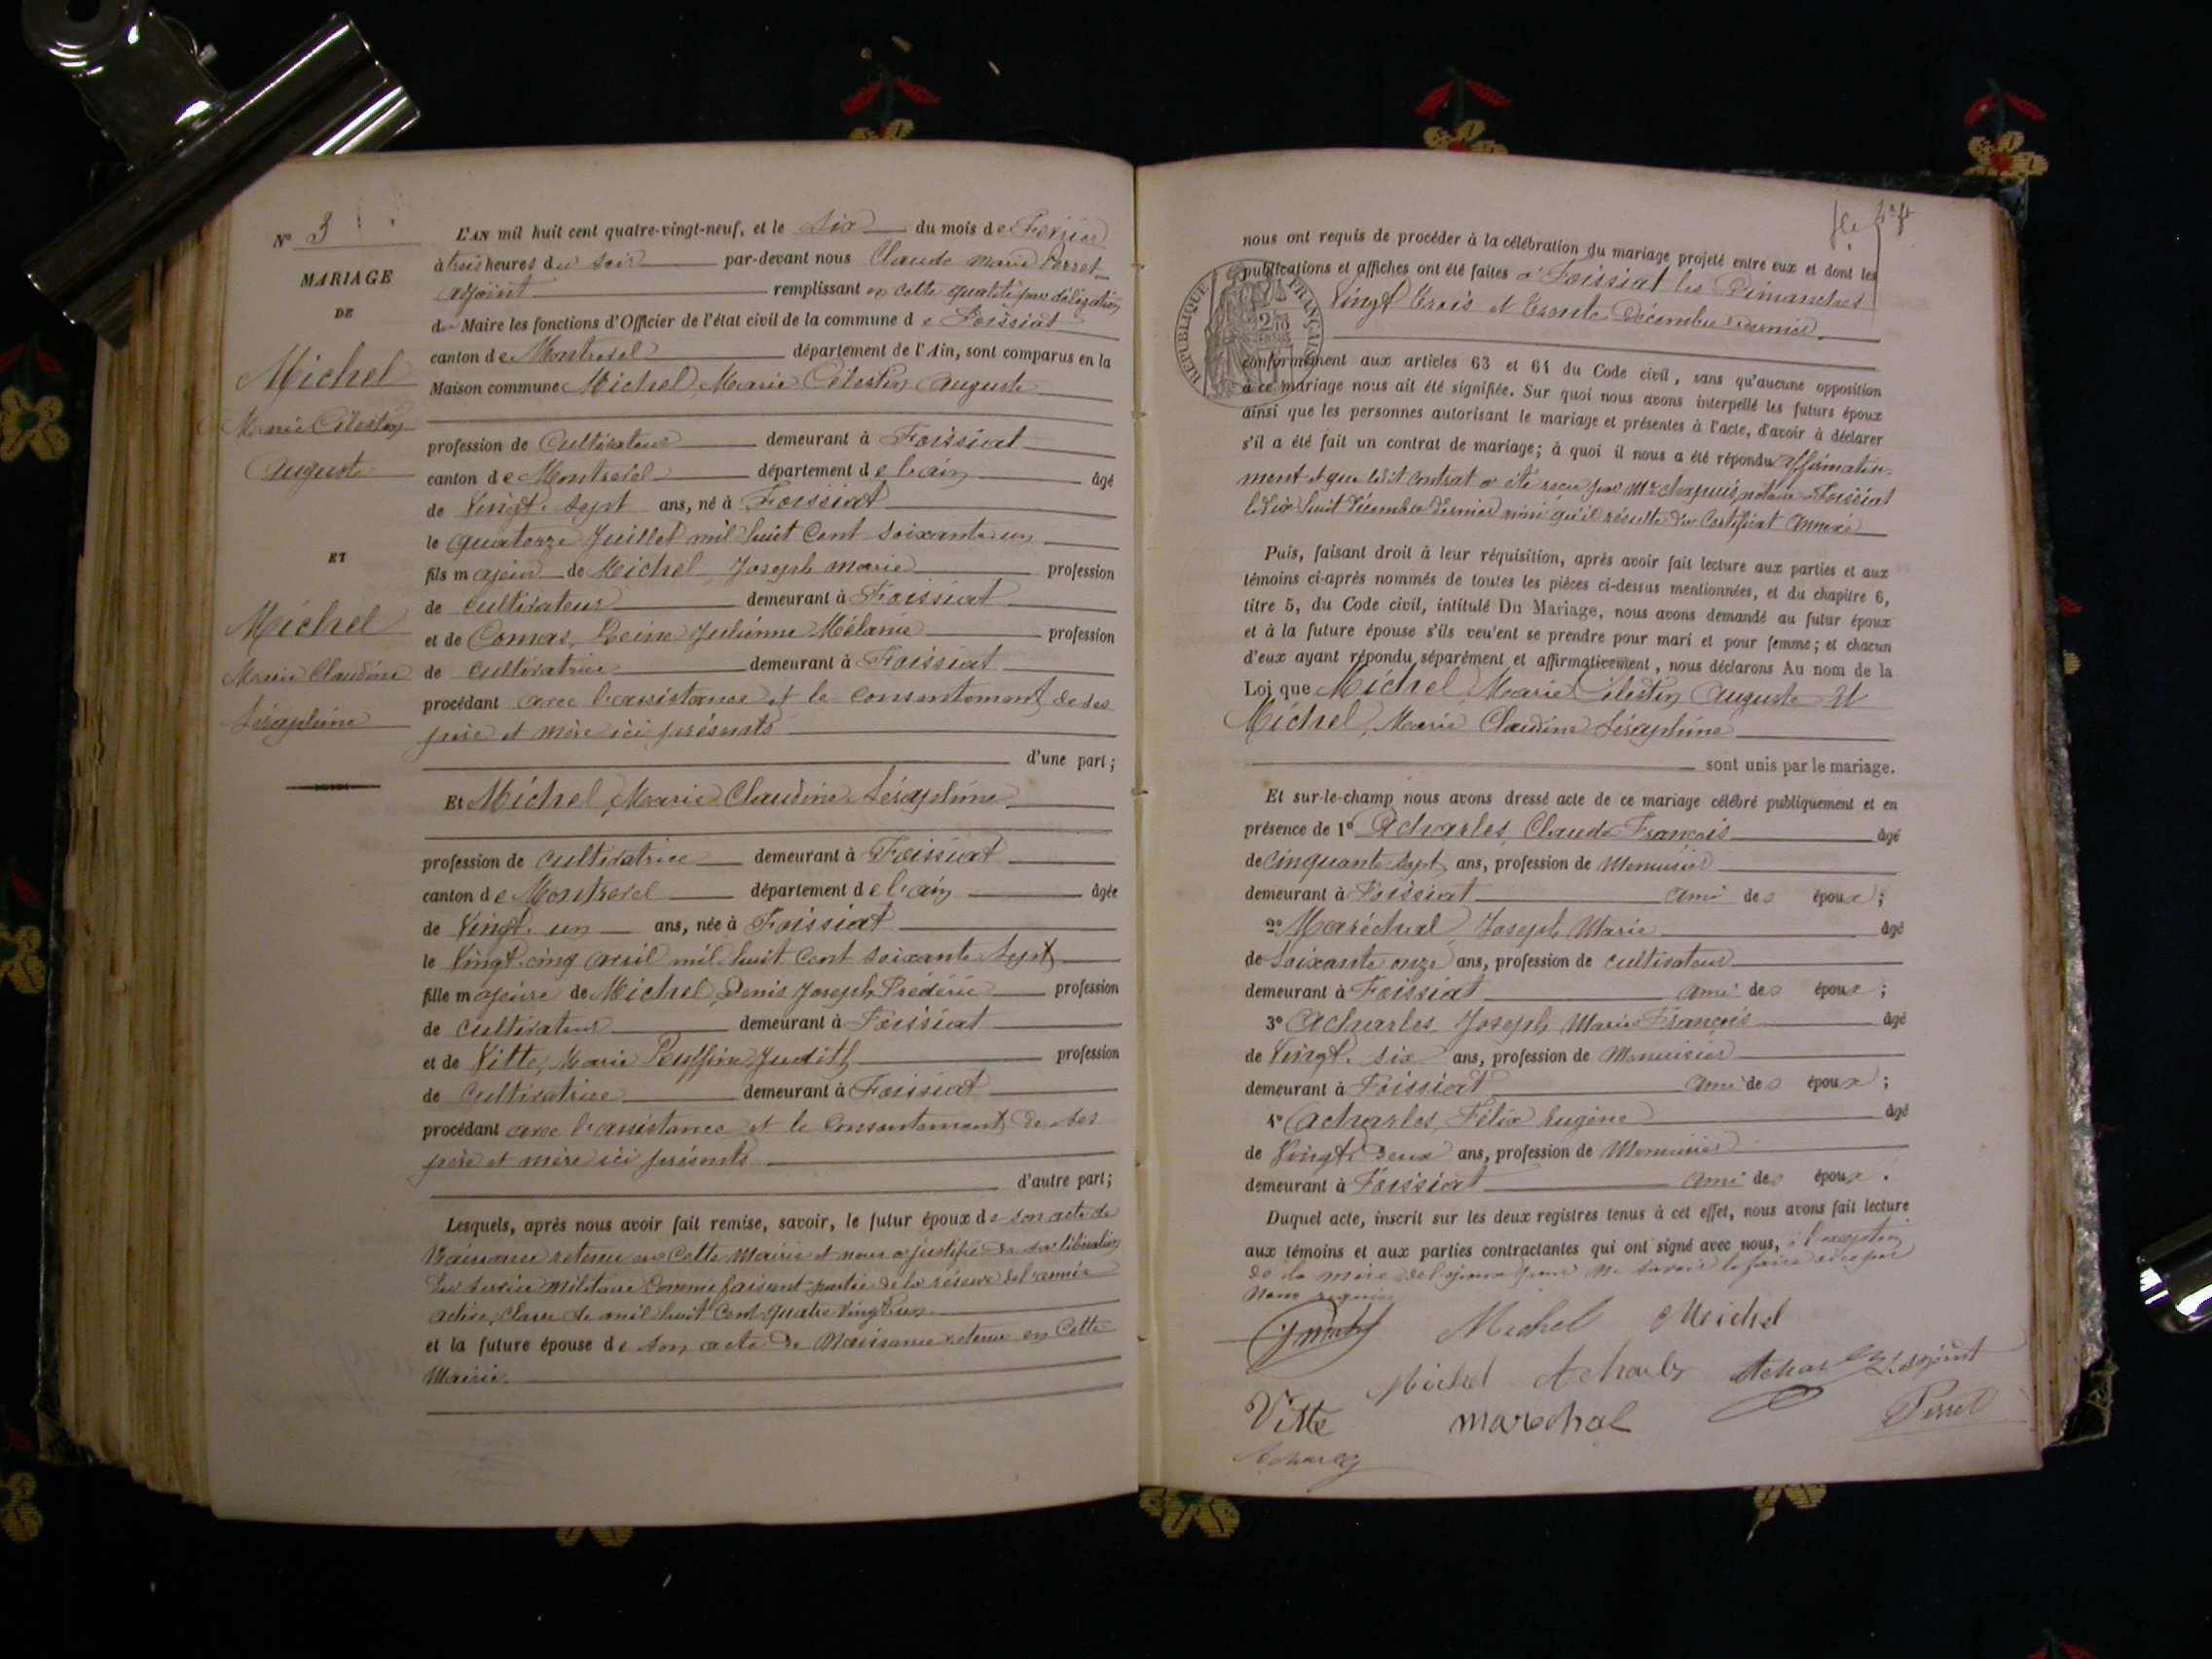 N° 3
MARIAGE
DE
Michel
Marie Célestin
Auguste
ET
Michel
Marie Claudine
Séraphine
L'AN mil huit cent quatre-vingt-neuf, et le six du mois de Février
à trois heures du soir par-devant nous Claude Marie Perret
adjoint remplissant en cette qualité par délégation
du Maire les fonctions d'Officier de l'état civil de la commune de Foissiat
canton de Montrevel département de l'Ain, sont comparus en la
Maison commune Michel, Marie Célestin Auguste
profession de Cultivateur demeurant à Foissiat
canton de Montrevel département de l'ain âgé
de Vingt-sept ans, né à Foissiat
le quatorze Juillet mil huit Cent soixante un
fils majeur de Michel Joseph Marie profession
de cultivateur demeurant à Foissiat
et de Comas, Reine Julienne Mélanie profession
de cultivatrice demeurant à Foissiat
procédant avec l'assistance et le consentement de ses
père et mère ici présents
d'une part;
Et Michel, Marie Claudine Séraphine
profession de cultivatrice demeurant à Foissiat
canton de Montrevel département de l'ain âgée
de Vingt-un ans, née à Foissiat
le Vingt-cinq avril mil huit Cent soixante sept
fille majeure de Michel, Denis Joseph Frédéric profession
de cultivateur demeurant à Foissiat
et de Vitte, Marie Judith profession
de Cultivatrice demeurant à Foissiat
procédant avec l'assistance et le Consentement de ses
père et mère ici présents
d'autre part;
Lesquels, après nous avoir fait remise, savoir, le futur époux de son acte de
Naissance retenu en Cette Mairie et nous a justifié de sa libération
du service Militaire Comme faisant partie de la réserve de l'armée
active, classe de mil huit Cent quatre-Vingt-un
et la future épouse de son acte de Naissance retenu en Cette
Mairie.
nous ont requis de procéder à la célébration du mariage projeté entre eux et dont les
publications et affiches ont été faites à Foissiat les Dimanches
Vingt trois et trente Décembre dernier
RÉPUBLIQUE FRANÇAISE
conformément aux articles 63 et 64 du Code civil, sans qu'aucune opposition
à ce mariage nous ait été signifiée. Sur quoi nous avons interpellé les futurs époux
ainsi que les personnes autorisant le mariage et présentes à l'acte, d'avoir à déclarer
s'il a été fait un contrat de mariage; à quoi il nous a été répondu affirmative-
ment et que ledit Contrat a été recu par Me chapuis, notaire à Foissiat
le dix huit Décembre dernier ainsi qu'il résulte du Certificat Annexé
Puis, faisant droit à leur réquisition, après avoir fait lecture aux parties et aux
témoins ci-après nommés de toutes les pièces ci-dessus mentionnées, et du chapitre 6,
titre 5, du Code civil, intitulé Du Mariage, nous avons demandé au futur époux
et à la future épouse s'ils veulent se prendre pour mari et pour femme; et chacun
d'eux ayant répondu séparément et affirmativement, nous déclarons Au nom de la
Loi que Michel Marie Célestin Auguste Et
Michel, Marie Claudine Séraphine
sont unis par le mariage.
Et sur-le-champ nous avons dressé acte de ce mariage célébré publiquement et en
présence de 1° Acharles, Claude François âgé
de cinquante sept ans, profession de Menuisier
demeurant à Foissiat ami des époux;
2° Maréchal Joseph Marie âgé
de soixante onze ans, profession de cultivateur
demeurant à Foissiat ami des époux;
3° Acharles, Joseph Marie François âgé
de Vingt-six ans, profession de Menuisier
demeurant à Foissiat ami des époux;
4° Acharles, Félix Eugène âgé
de Vingt-deux ans, profession de Menuisier
demeurant à Foissiat ami des époux.
Duquel acte, inscrit sur les deux registres tenus à cet effet, nous avons fait lecture
aux témoins et aux parties contractantes qui ont signé avec nous, à l'exception
de la mère de l'époux pour ne savoir le faire de ce par
Nous requis
Michel Michel
Michel Acharles Acharles L'adjoint
Vitte marechal Perret
Acharles